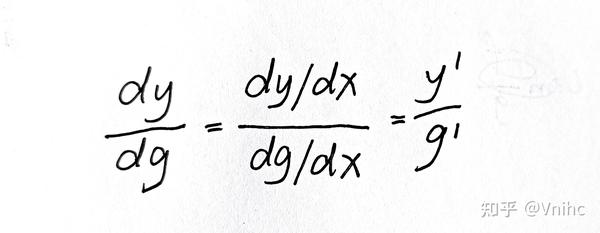 dy/dg = (dy/dx)/(dg/dx) = y'/g'
知乎 @Vnihc